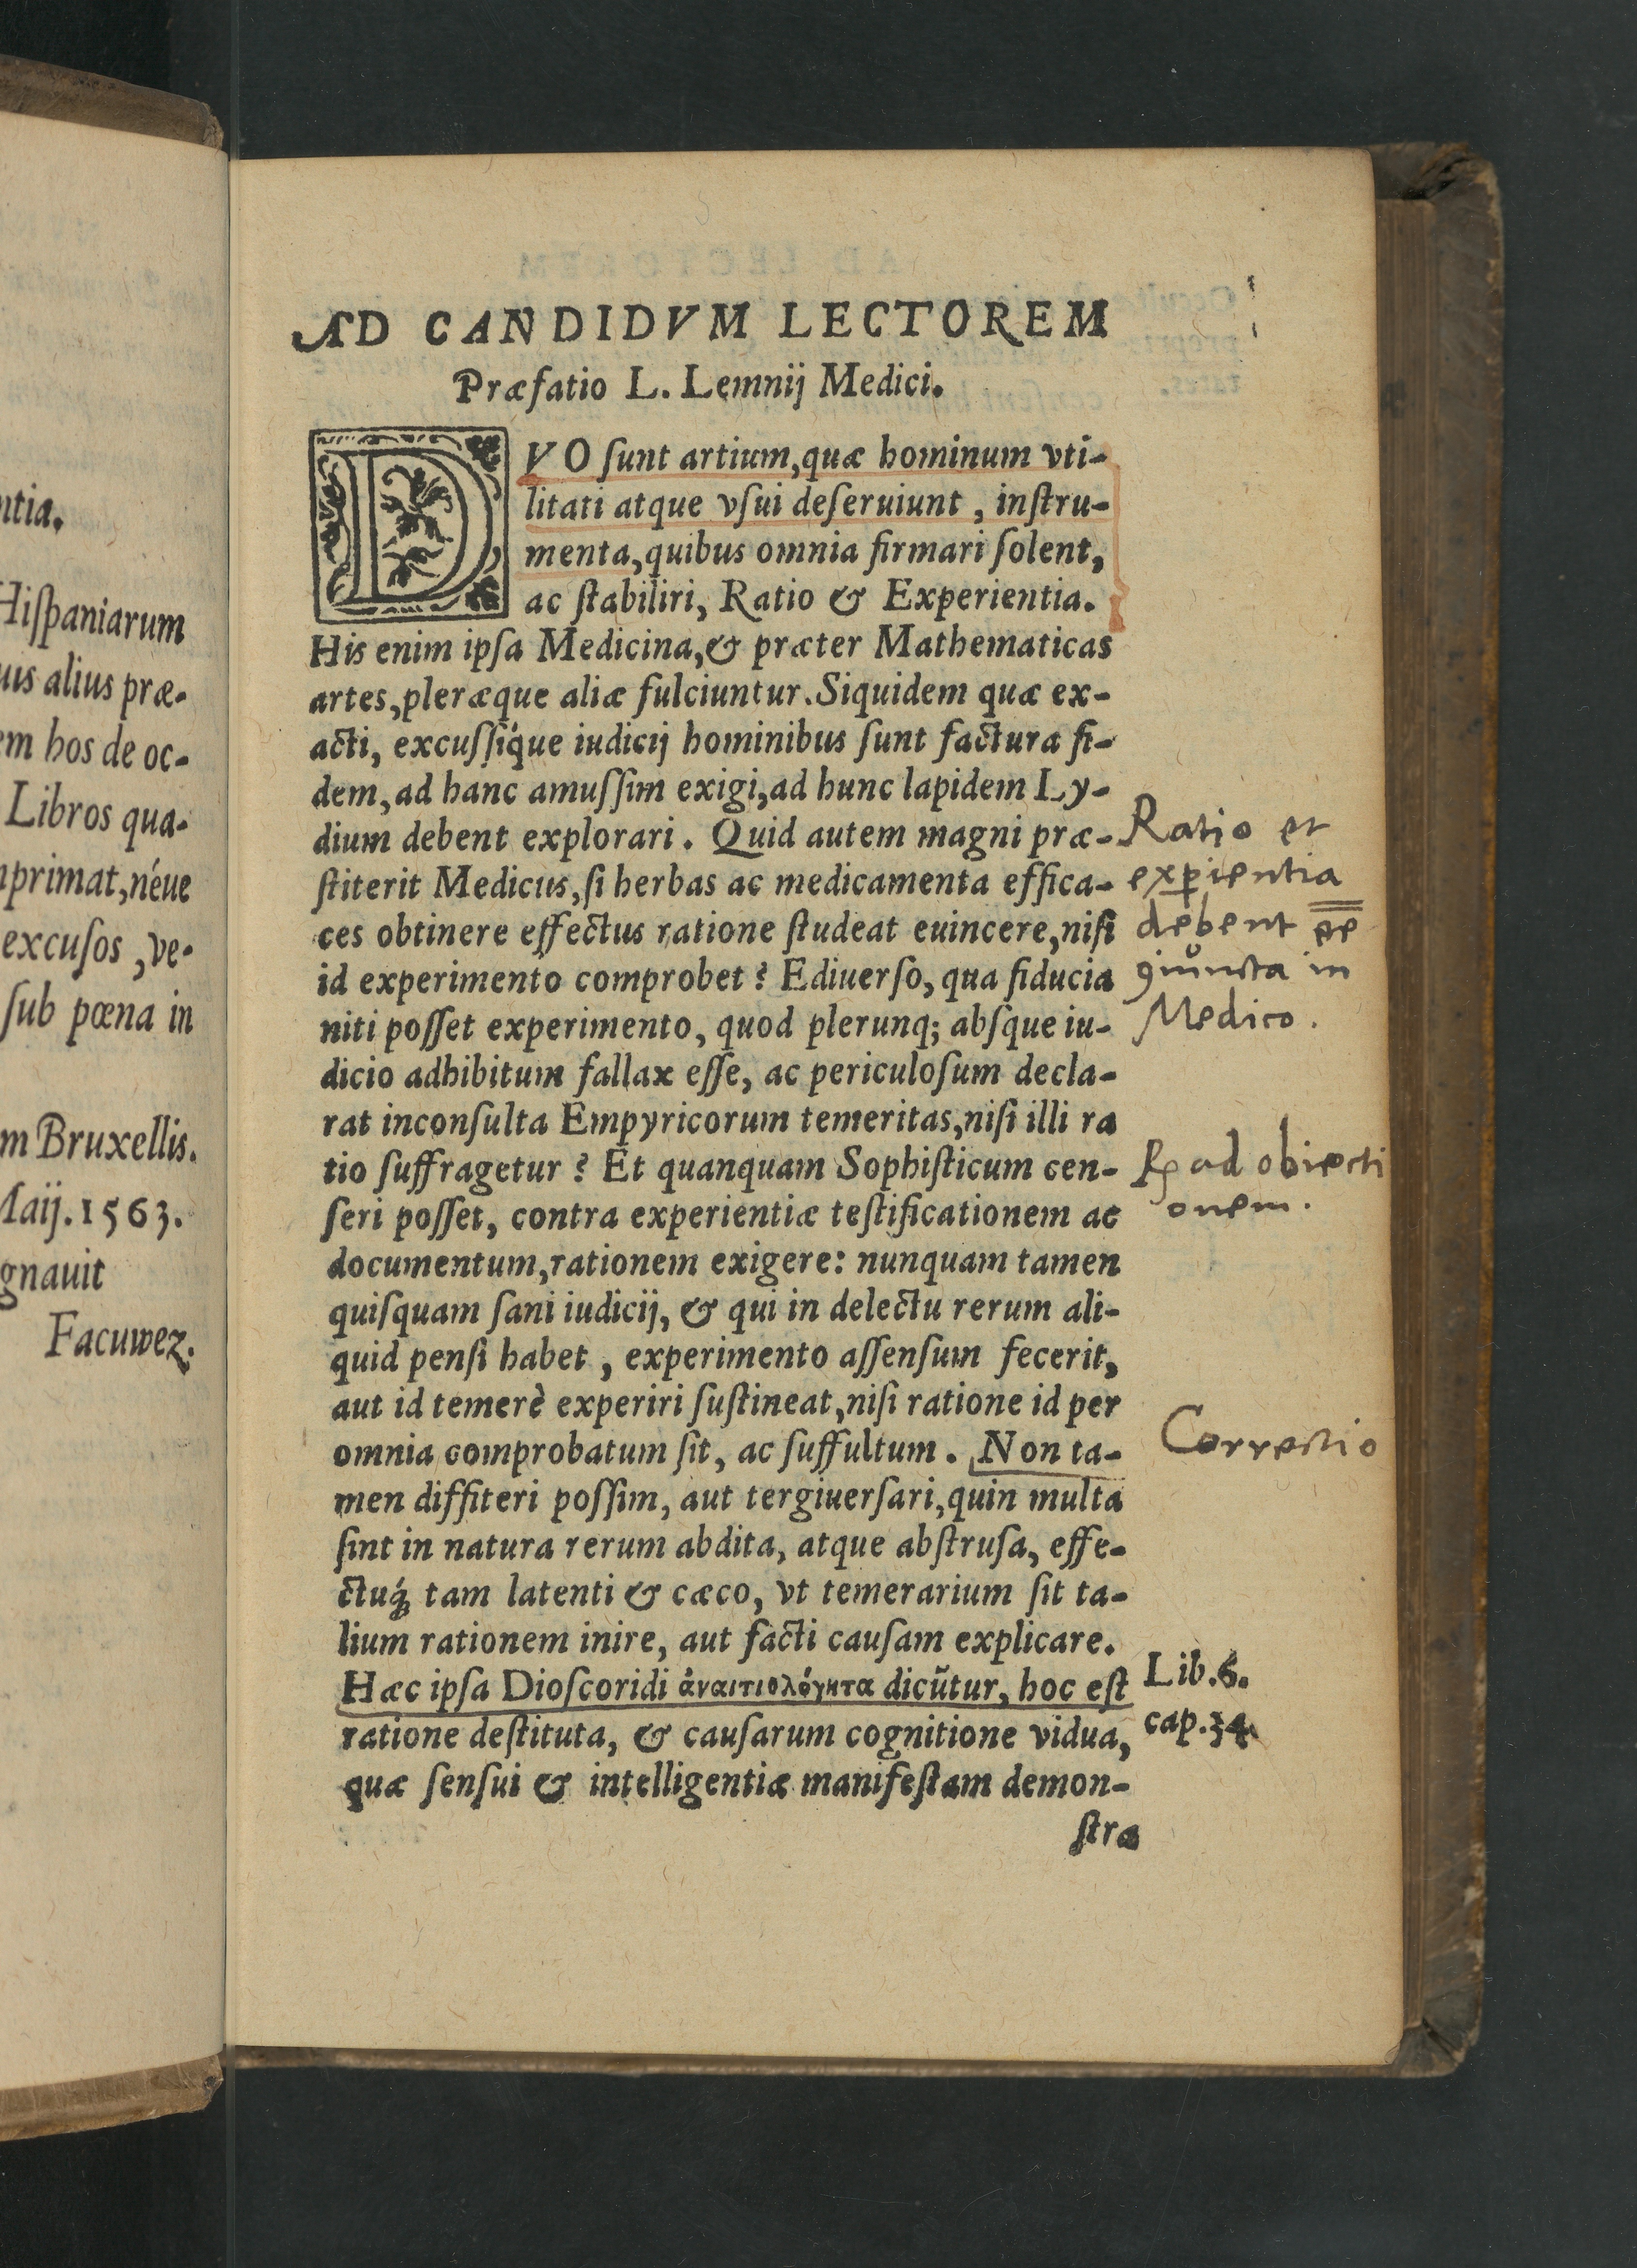 ntia.
Hiſpaniarum
uis alius præ-
em hos de oc-
Libros qua-
nprimat, néue
excuſos, ve-
ſub pœna in
m Bruxellis.
Maij. 1563.
gnauit
Facuwez.
AD CANDIDVM LECTOREM
Præfatio L. Lemnij Medici.
DVO ſunt artium, quæ hominum vti-
litati atque vſui deſeruiunt, inſtru-
menta, quibus omnia firmari ſolent,
ac ſtabiliri, Ratio & Experientia.
His enim ipſa Medicina, & præter Mathematicas
artes, pleræque aliæ fulciuntur. Siquidem quæ ex-
acti, excuſſíque iudicij hominibus ſunt factura fi-
dem, ad hanc amuſſim exigi, ad hunc lapidem Ly-
dium debent explorari. Quid autem magni præ-
ſtiterit Medicus, ſi herbas ac medicamenta effica-
ces obtinere effectus ratione ſtudeat euincere, niſi
id experimento comprobet? Ediuerſo, qua fiducia
niti poſſet experimento, quod plerunq; abſque iu-
dicio adhibitum fallax eſſe, ac periculoſum decla-
rat inconſulta Empyricorum temeritas, niſi illi ra
tio ſuffragetur? Et quanquam Sophiſticum cen-
ſeri poſſet, contra experientiæ teſtificationem ac
documentum, rationem exigere: nunquam tamen
quiſquam ſani iudicij, & qui in delectu rerum ali-
quid penſi habet, experimento aſſenſum fecerit,
aut id temerè experiri ſuſtineat, niſi ratione id per
omnia comprobatum ſit, ac ſuffultum. Non ta-
men diffiteri poſſim, aut tergiuerſari, quin multa
ſint in natura rerum abdita, atque abſtruſa, effe-
ctuq́; tam latenti & cæco, vt temerarium ſit ta-
lium rationem inire, aut facti cauſam explicare.
Hæc ipſa Dioſcoridi ἀναιτιολόγητα dicūtur, hoc eſt
ratione deſtituta, & cauſarum cognitione vidua,
quæ ſenſui & intelligentiæ manifeſtam demon-
ſtra
Ratio et
exꝑientia
debent e͞e
ꝯiuncta in
Medico.
℞ ad obiecti
onem.
Correctio
Lib. 6.
cap. 34